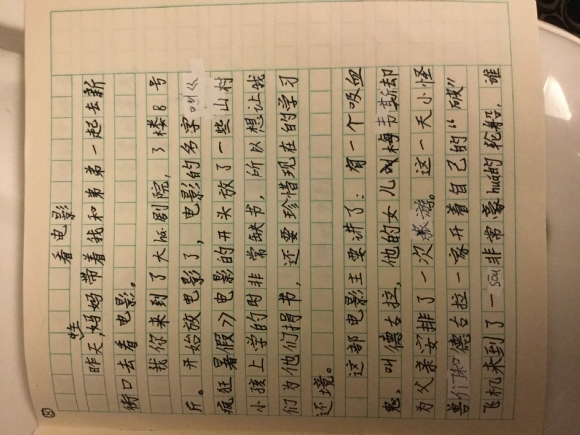 看电影
昨天妈妈带着我和弟弟一起去新
街口去看电影。
我你来到了大剧院,3楼8号
斤。开始放电影了,电影的名字叫《
疯狂暑假》电影的开头放了一些山村
小孩上学的时非常缺书,所以想让我
们为他们捐书,还要珍惜现在的学习
还境。
这部电影主要讲了:有一个吸血
鬼,叫德古拉,他的女儿叫梅韦斯却
为父亲安排了一次旅游。这一天小怪
兽们和德古拉一家开着自己的“破”
飞机来到了一sōu非常豪huá的轮船,谁